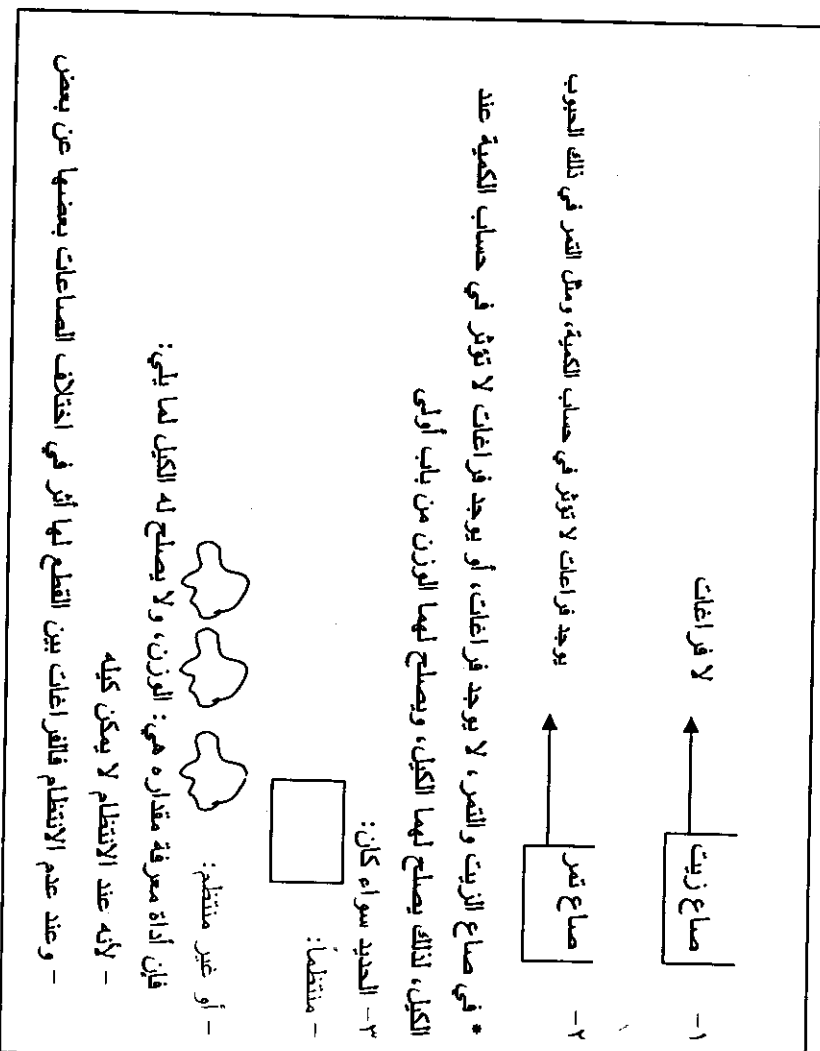 ١- صاع زيت لا فراغات
٢- صاع تمر يوجد فراغات لا تؤثر في حساب الكمية، ومثل التمر في ذلك الحبوب
* في صاع الزيت والتمر، لا يوجد فراغات، أو يوجد فراغات لا تؤثر في حساب الكمية عند
الكيل، لذلك يصلح لهما الكيل، ويصلح لهما الوزن من باب أولى
٣- الحديد سواء كان:
- منتظماً:
- أو غير منتظم:
فإن أداة معرفة مقداره هي: الوزن، ولا يصلح له الكيل لما يلي:
- لأنه عند الانتظام لا يمكن كيله
- وعند عدم الانتظام فالفراغات بين القطع لها أثر في اختلاف الصاعات بعضها عن بعض